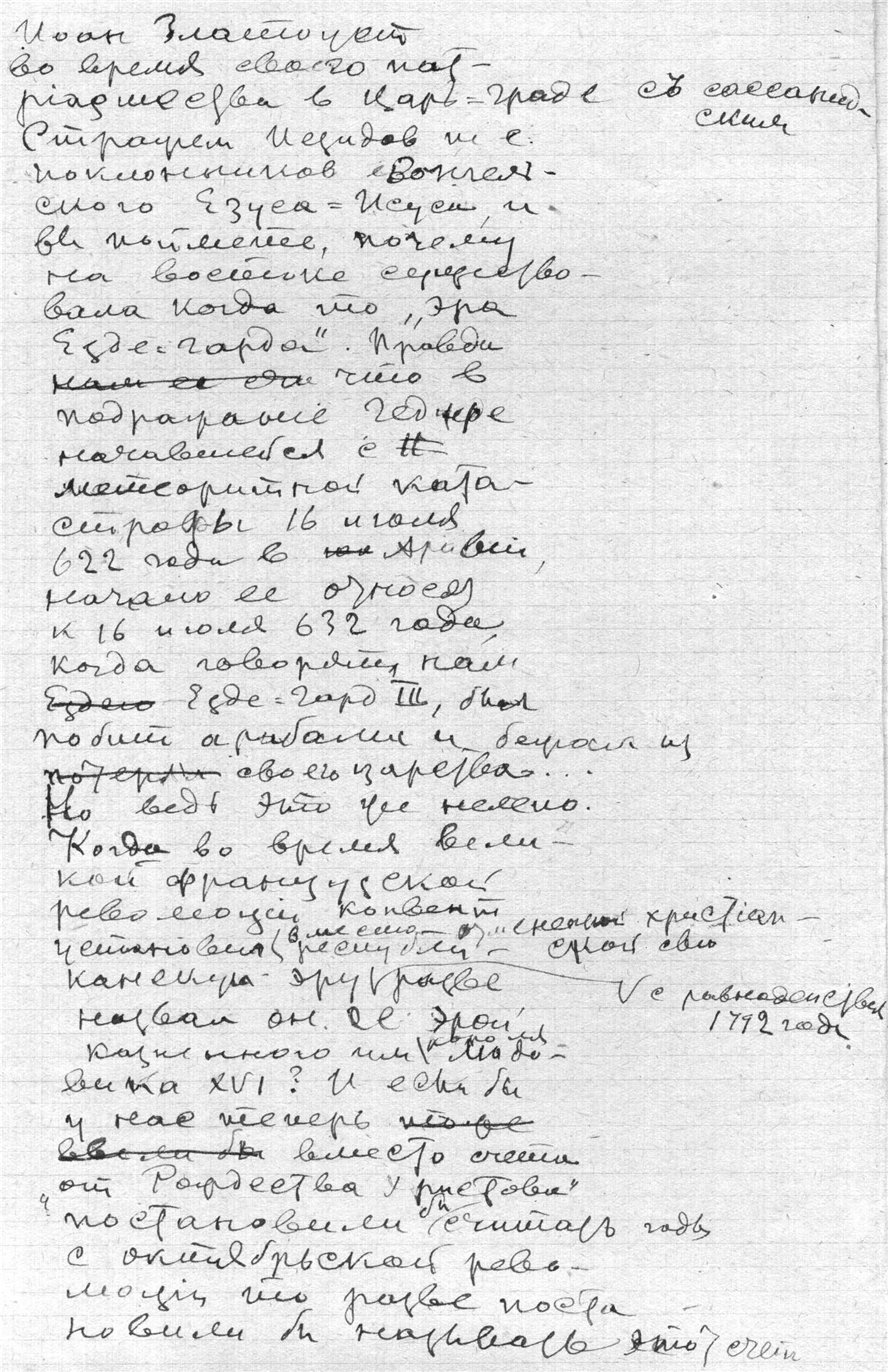 Иоан Златоуст
во время своего пат-
ріаршества в Царь=граде съ сассанид-
ским
Страхем Иездов т е.
поклонников Евангел-
ского Езуса=Исуса, и
вы поймете, почему
на востоке существо-
вала когда то „эра
Езде=гарда". Правда
что в
подражание Геджре
начавшейся с
метеоритной ката-
строфы 16 июля
622 года в Аравии,
начало ее относят
к 16 июля 632 года,
когда говорят нам
Ездего Езде=Гард III, был
побит арабами и бежал из
потерял своего царства...
Но ведь это уже нелепо.
Когда во время вели-
кой французской
революции конвент
установил вместо христіан-
ской свою республи-
канскую эру разве
V с равноденствия
1792 года.
назвал он ее эрой
казненного им короля Людо-
вика XVI? И если бы
у нас теперь
ввели бы вместо счета
„от Рождества Христова"
постановили бы считать годы
с октябрьской рево-
люции то разве поста
новили бы называть этот счет